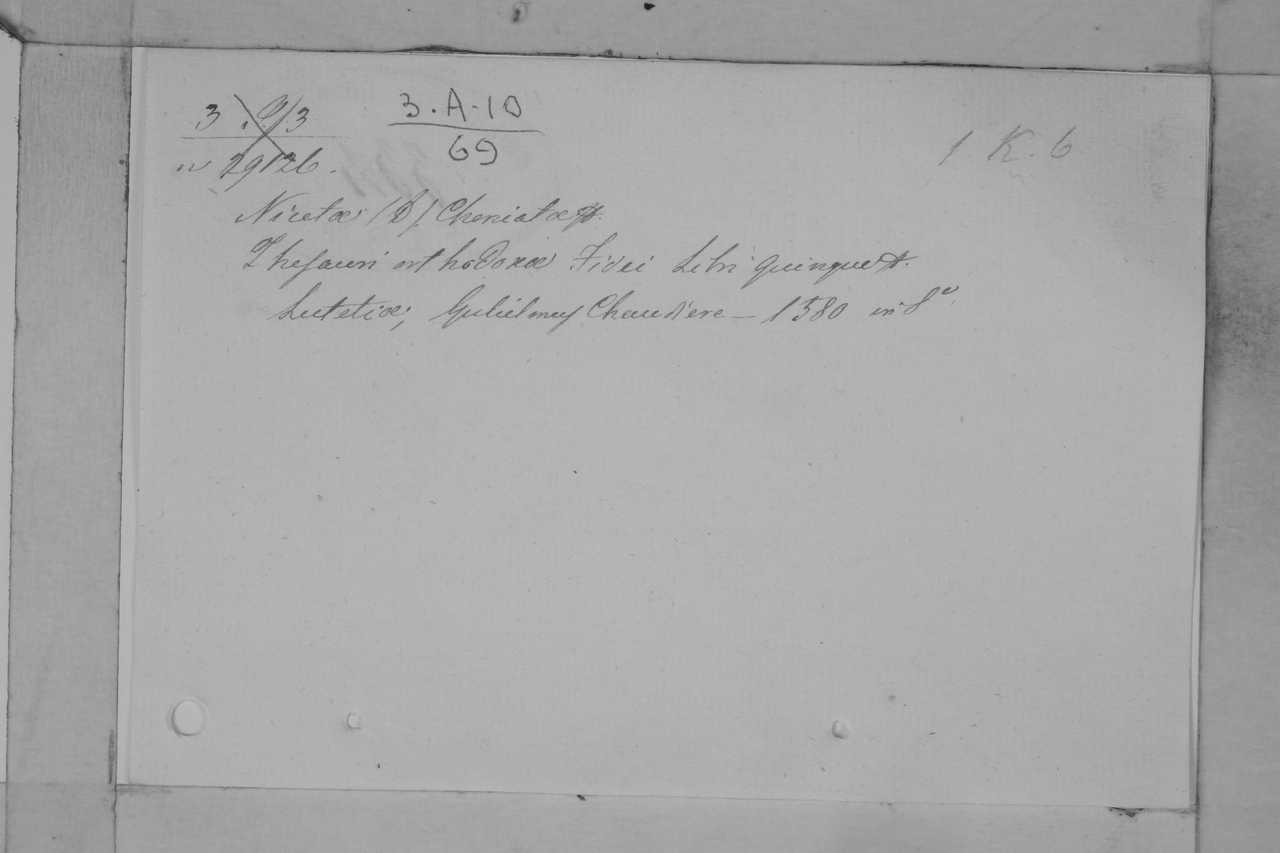 3. A-10
69
1. K. 6
n 29126.
Nicetæ (D) Choniatæ.
Thesauri orthodoxæ Fidei Libri quinque.
Lutetiæ, Gulielmus Chaudiere — 1580 in 8º